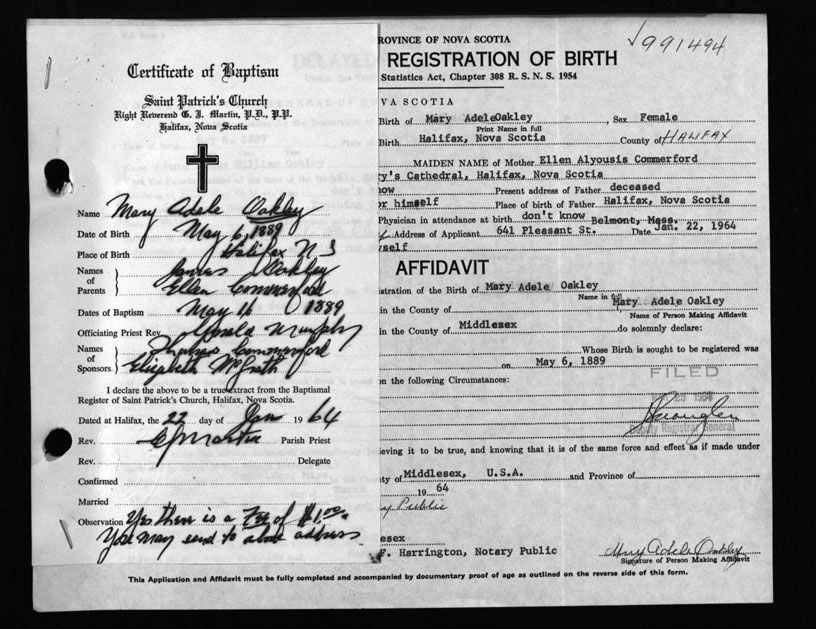 Certificate of Baptism
Saint Patrick's Church
Right Reverend G. J. Martin, P.D., P.P.
Halifax, Nova Scotia
Name Mary Adele Oakley
Date of Birth May 6, 1889
Place of Birth Halifax N S
Names of Parents James Oakley
Ellen Commerford
Dates of Baptism May 16 1889
Officiating Priest Rev. Gerald Murphy
Names of Sponsors Thomas Commerford
Elizabeth McGrath
I declare the above to be a true extract from the Baptismal
Register of Saint Patrick's Church, Halifax, Nova Scotia.
Dated at Halifax, the 22 day of Jan 19 64
Rev. G J Martin Parish Priest
Rev. Delegate
Confirmed
Married
Observation Yes there is a Fee of $1.00.
You may send to above address
√991494
PROVINCE OF NOVA SCOTIA
REGISTRATION OF BIRTH
Statistics Act, Chapter 308 R. S. N. S. 1954
VA SCOTIA
Birth of Mary AdeleOakley, Sex Female
Print Name in full
Birth Halifax, Nova Scotia County of HALIFAX
MAIDEN NAME of Mother Ellen Alyousis Commerford
y's Cathedral, Halifax, Nova Scotia
now Present address of Father deceased
or himself Place of birth of Father Halifax, Nova Scotia
Physician in attendance at birth don't know Belmont, Mass.
Address of Applicant 641 Pleasant St. Date Jan. 22, 1964
rself
AFFIDAVIT
istration of the Birth of Mary Adele Oakley
Name in full
in the County of Mary Adele Oakley
Name of Person Making Affidavit
in the County of Middlesex do solemnly declare:
Whose Birth is sought to be registered was
on May 6, 1889
n the following Circumstances:
FILED
Deputy Registrar General
ieving it to be true, and knowing that it is of the same force and effect as if made under
ty of Middlesex, U.S.A. and Province of
19 64
ry Public
esex
F. Harrington, Notary Public
Mary Adele Oakley
Signature of Person Making Affidavit
This Application and Affidavit must be fully completed and accompanied by documentary proof of age as outlined on the reverse side of this form.